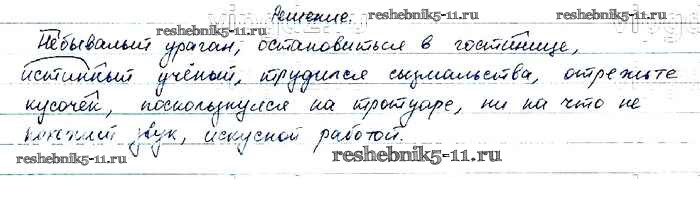 Решение.
reshebnik5-11.ru reshebnik5-11.ru
Небывалый ураган, остановиться в гостинице,
истинный учёный, трудился сызмальства, отрежьте
кусочек, поскользнулся на тротуаре, ни на что не
звук, искусной работой.
reshebnik5-11.ru reshebnik5-11.ru